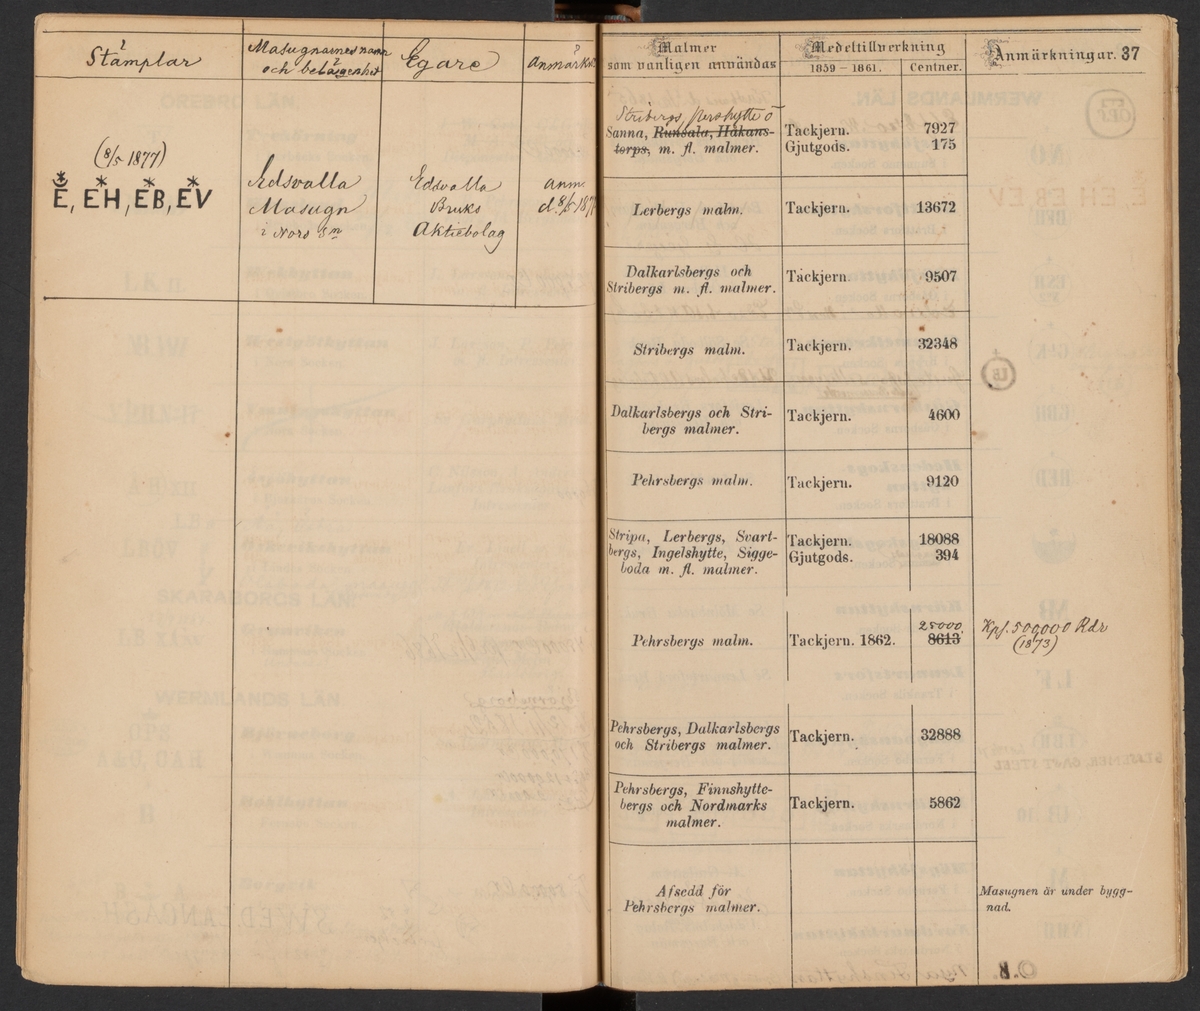 Stämplar
Masugnarnes namn
och belägenhet
Egare
Anmärkn.
(8/5 1877)
E, EH, EB, EV
Edsvalla
Masugn
i Nors Sn
Edsvalla
Bruks
Aktiebolag
anm.
d. 8/5 187
Malmer
som vanligen användas
Medeltillverkning
1859 – 1861.
Centner.
Anmärkningar. 37
Stribergs, Pershytte o
Sanna, Runsala, Håkans-
torps, m. fl. malmer.
Tackjern.
Gjutgods.
7927
175
Lerbergs malm.
Tackjern.
13672
Dalkarlsbergs och
Stribergs m. fl. malmer.
Tackjern.
9507
Stribergs malm.
Tackjern.
32348
Dalkarlsbergs och Stri-
bergs malmer.
Tackjern.
4600
Pehrsbergs malm.
Tackjern.
9120
Stripa, Lerbergs, Svart-
bergs, Ingelshytte, Sigge-
boda m. fl. malmer.
Tackjern.
Gjutgods.
18088
394
Pehrsbergs malm.
Tackjern. 1862.
25000
8613
Kpf. 500,000 Rdr
(1873)
Pehrsbergs, Dalkarlsbergs
och Stribergs malmer.
Tackjern.
32888
Pehrsbergs, Finnshytte-
bergs och Nordmarks
malmer.
Tackjern.
5862
Afsedd för
Pehrsbergs malmer.
Masugnen är under bygg-
nad.